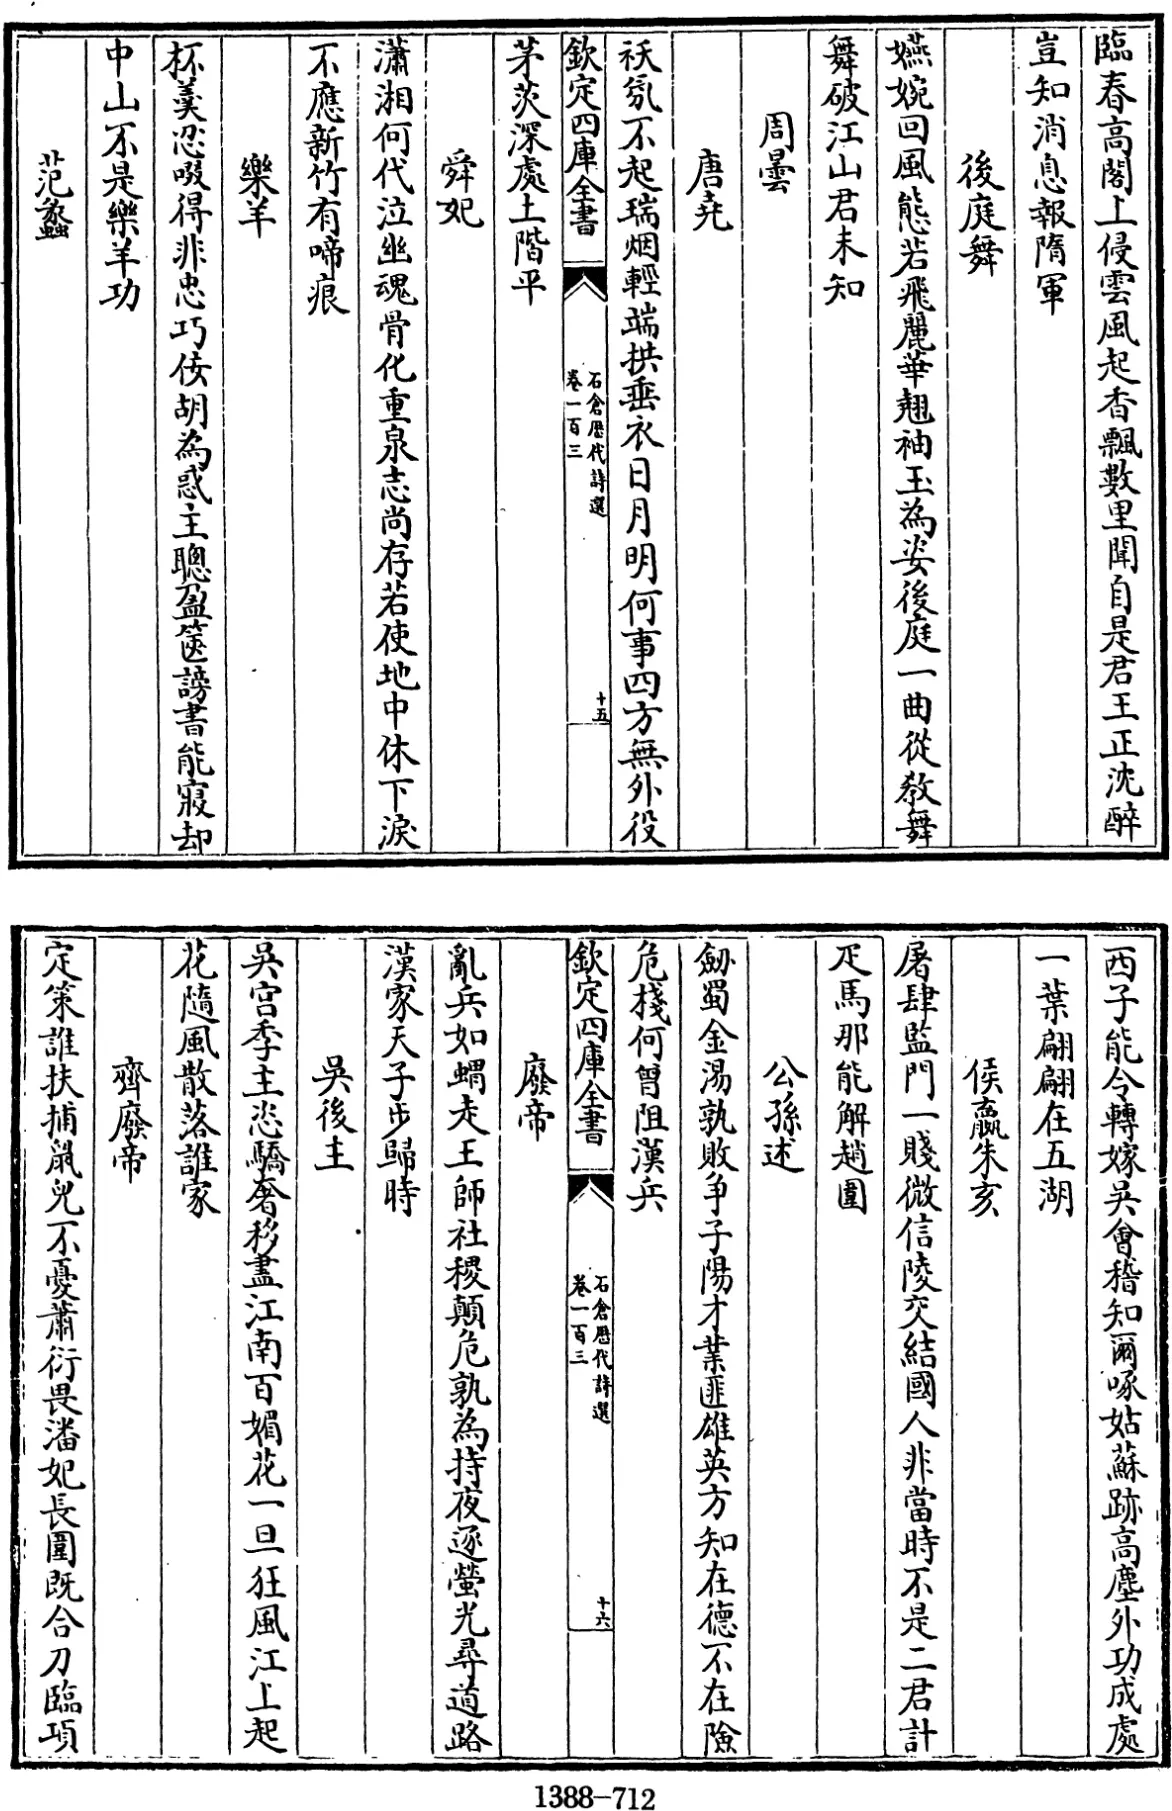 臨春高閣上侵雲風起香飄數里聞自是君王正沈醉
豈知消息報隋軍
後庭舞
嬿婉回風態若飛麗華翹袖玉為姿後庭一曲從教舞
舞破江山君未知
周曇
唐堯
祅氛不起瑞烟輕端拱垂衣日月明何事四方無外役
欽定四庫全書
石倉歷代詩選
卷一百三
十五
茅茨深處土階平
舜妃
瀟湘何代泣幽魂骨化重泉志尚存若使地中休下淚
不應新竹有啼痕
樂羊
杯羹忍啜得非忠巧佞胡為惑主聰盈篋謗書能寢却
中山不是樂羊功
范蠡
西子能令轉嫁吳會稽知爾啄姑蘇跡高塵外功成處
一葉翩翩在五湖
侯嬴朱亥
屠肆監門一賤微信陵交結國人非當時不是二君計
疋馬那能解趙圍
公孫述
劒蜀金湯孰敗争子陽才業匪雄英方知在德不在險
危棧何曾阻漢兵
欽定四庫全書
石倉歷代詩選
卷一百三
十六
廢帝
亂兵如蝟走王師社稷顛危孰為持夜逐螢光尋道路
漢家天子步歸時
吳後主
吳宮季主恣驕奢移盡江南百媚花一旦狂風江上起
花隨風散落誰家
齊廢帝
定策誰扶捕鼠兒不憂蕭衍畏潘妃長圍既合刀臨項
1388-712